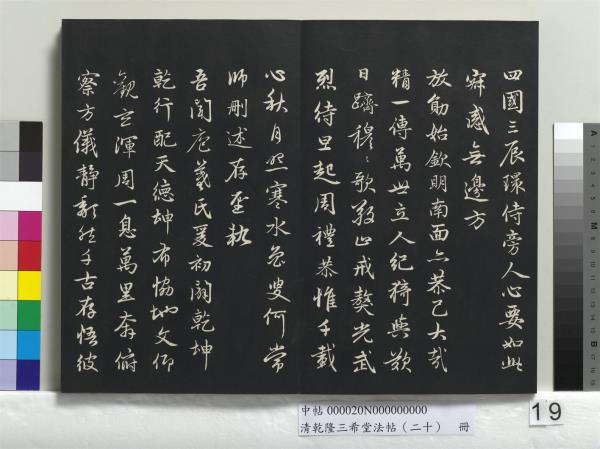 四國三辰環侍旁人心要如此
寂感無邊方
放勛始欽明南面亦恭己大哉
精一傳萬世立人紀猗與歎
日躋穆〻歌敬止戒獒光武
烈待旦起周禮恭惟千載
心秋月照寒水魯叟何常
師刪述存聖軌
吾聞庖羲氏爰初闢乾坤
乾行配天德坤布協地文仰
觀玄渾周一息萬里奔俯
察方儀靜隤然千古存悟彼
中帖 000020N000000000
清乾隆三希堂法帖（二十） 冊
19